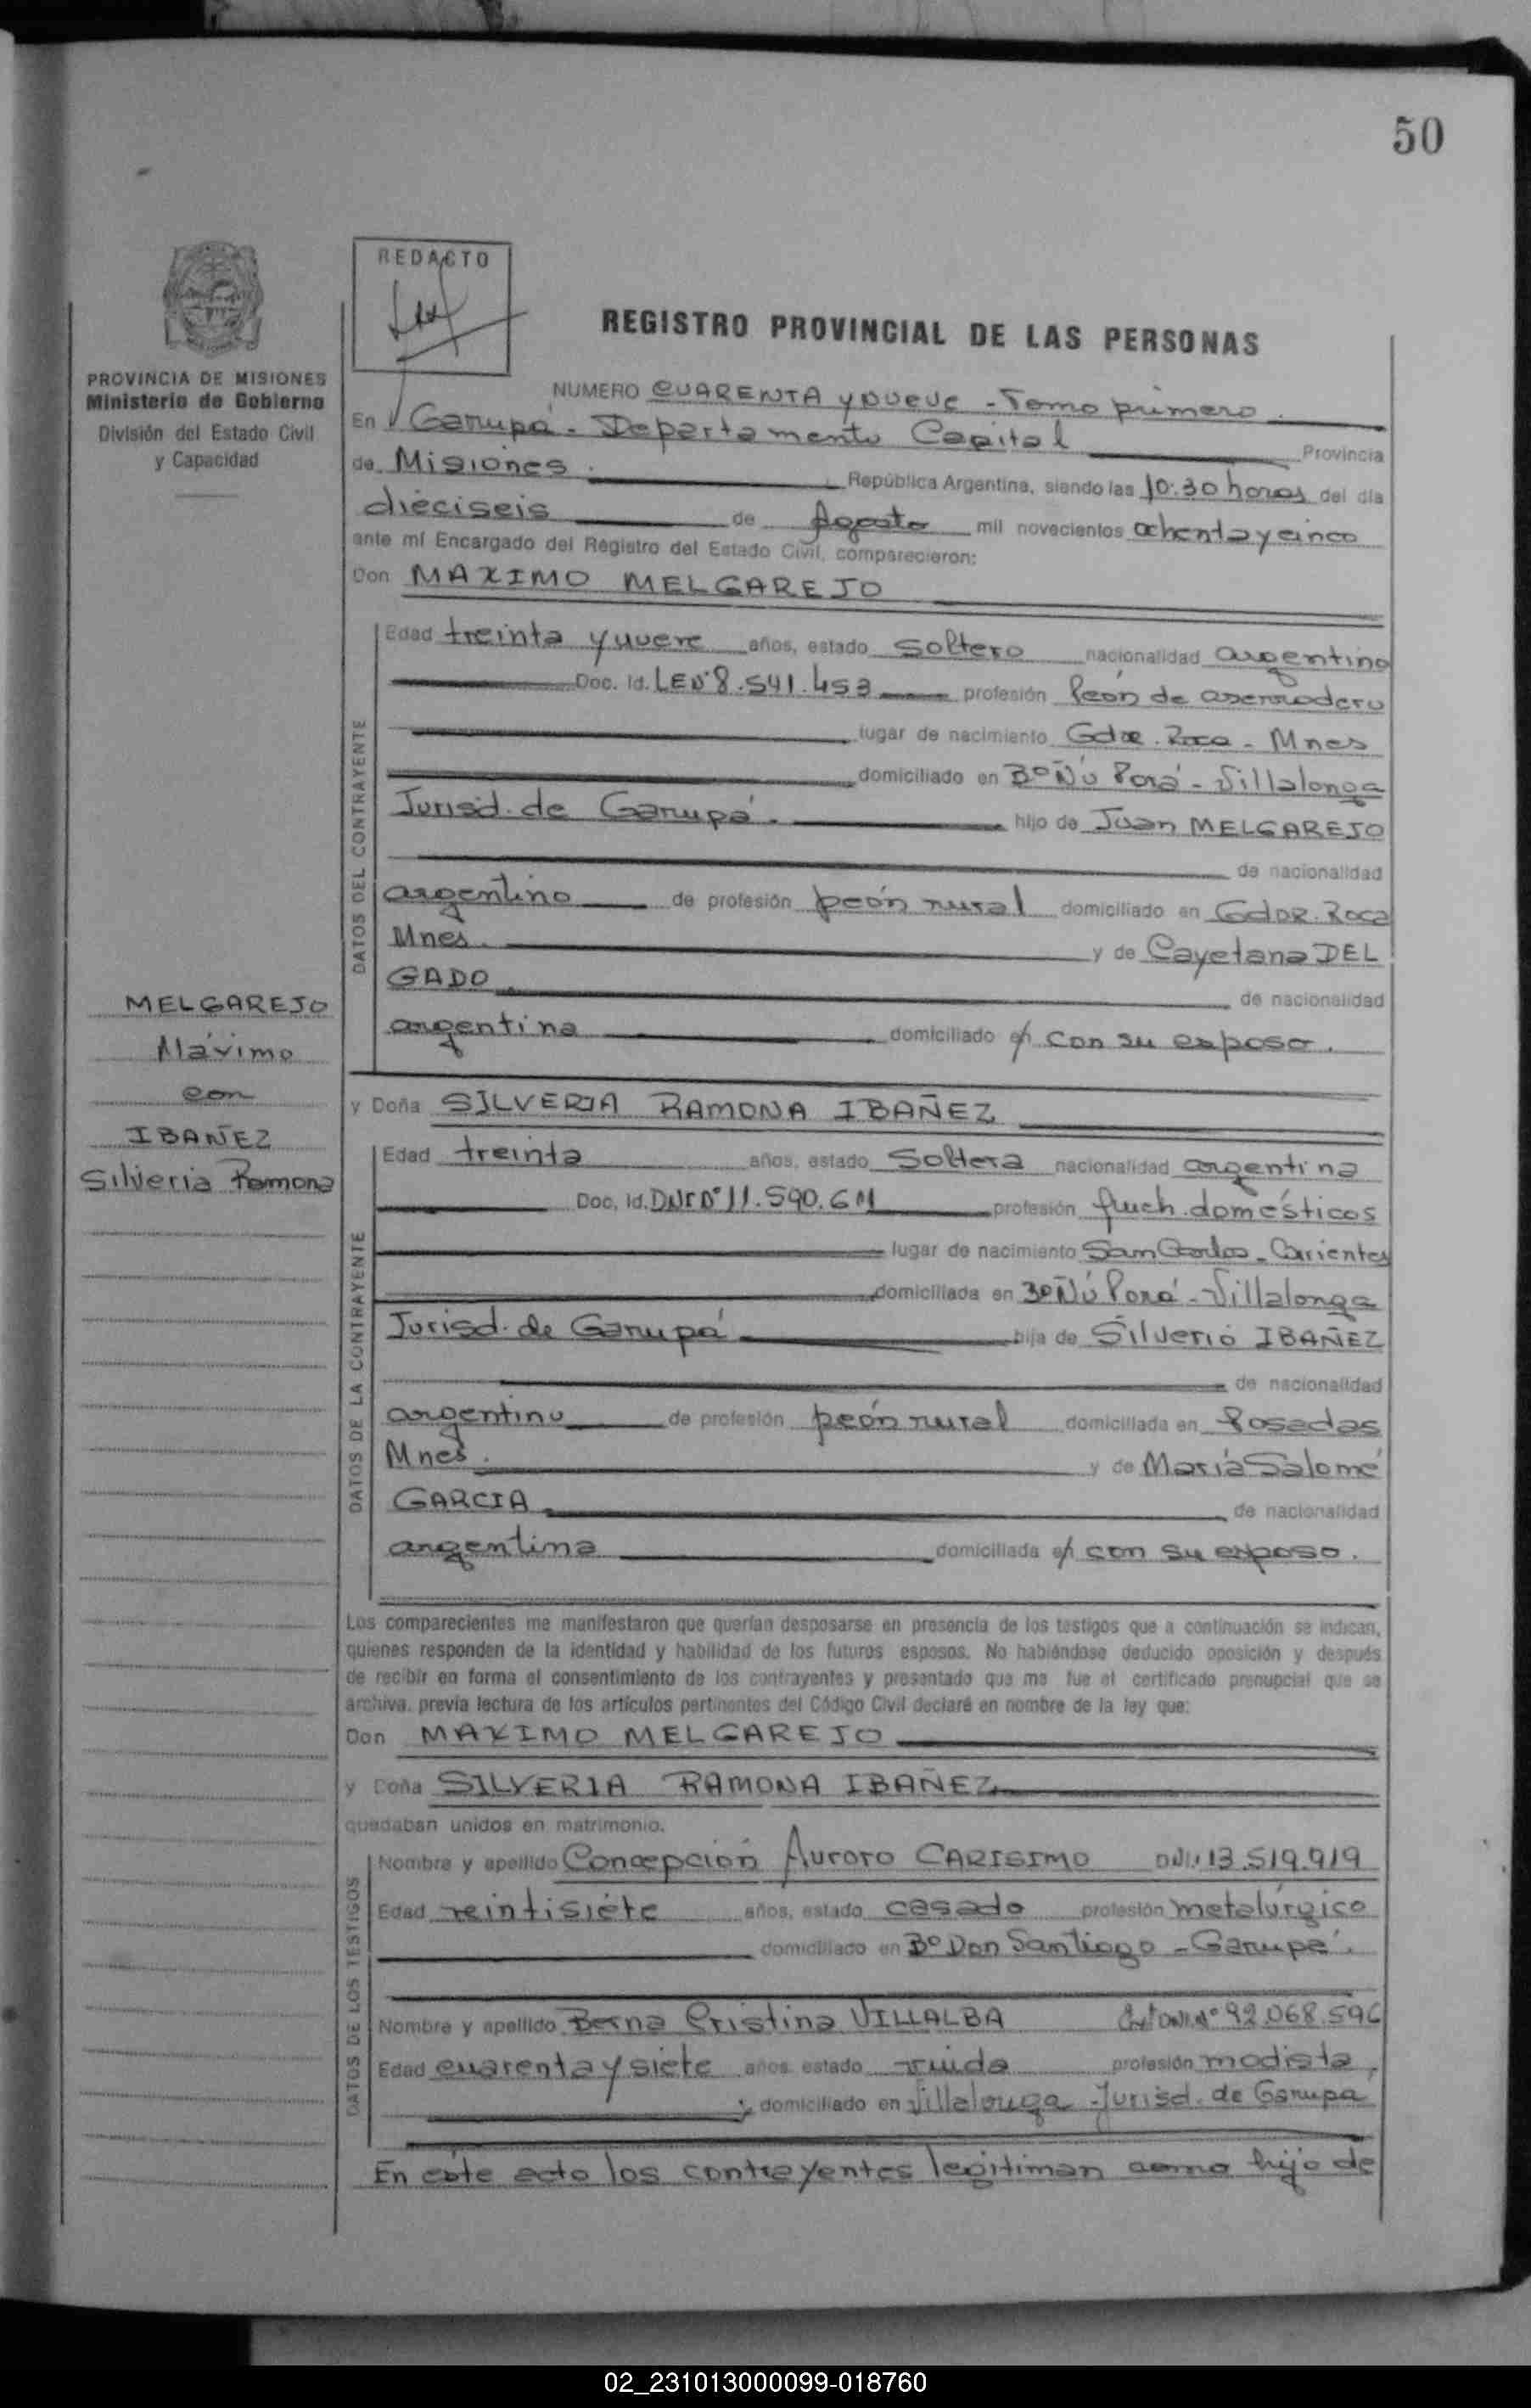 50
REDACTO
REGISTRO PROVINCIAL DE LAS PERSONAS
PROVINCIA DE MISIONES
Ministerio de Gobierno
División del Estado Civil
y Capacidad
NUMERO CUARENTA y nueve - Tomo primero.
En Garupá - Departamento Capital Provincia
de Misiones. República Argentina, siendo las 10:30 horas del día
dieciseis de Agosto mil novecientos ochenta y cinco
ante mí Encargado del Registro del Estado Civil, comparecieron:
Don MAXIMO MELGAREJO
DATOS DEL CONTRAYENTE
Edad treinta y nueve años, estado soltero nacionalidad argentino
Doc. Id. LEN° 8.541.453 profesión Peón de aserradero
lugar de nacimiento Gdor. Roca - Mnes
domiciliado en B° Ñú Porá - Villalonga
Jurisd. de Garupá. hijo de Juan MELGAREJO
de nacionalidad
argentino de profesión peón rural domiciliado en Gdor. Roca
Mnes. y de Cayetana DEL
GADO de nacionalidad
argentina domiciliado en con su esposo.
MELGAREJO
Máximo
con
IBAÑEZ
Silveria Ramona
y Doña SILVERIA RAMONA IBAÑEZ
DATOS DE LA CONTRAYENTE
Edad treinta años, estado Soltera nacionalidad argentina
Doc. Id. DNI N° 11.590.611 profesión Queh. domésticos
lugar de nacimiento San Carlos - Corrientes
domiciliada en B° Ñú Porá - Villalonga
Jurisd. de Garupá hija de Silverio IBAÑEZ
de nacionalidad
argentino de profesión peón rural domiciliada en Posadas
Mnes. y de María Salomé
GARCIA de nacionalidad
argentina domiciliada en con su esposo.
Los comparecientes me manifestaron que querían desposarse en presencia de los testigos que a continuación se indican,
quienes responden de la identidad y habilidad de los futuros esposos. No habiéndose deducido oposición y después
de recibir en forma el consentimiento de los contrayentes y presentado que me fue el certificado prenupcial que se
archiva, previa lectura de los artículos pertinentes del Código Civil declaré en nombre de la ley que:
Don MAXIMO MELGAREJO
y Doña SILVERIA RAMONA IBAÑEZ
quedaban unidos en matrimonio.
DATOS DE LOS TESTIGOS
Nombre y apellido Concepción Auroro CARISIMO DNI. 13.519.919
Edad veintisiete años, estado casado profesión metalúrgico
domiciliado en B° Don Santiago - Garupá.
Nombre y apellido Berna Cristina VILLALBA DNI. N° 92.068.596
Edad cuarenta y siete años estado viuda profesión modista,
domiciliado en Villalonga - Jurisd. de Garupá
En este acto los contrayentes legitiman como hijo de
02_231013000099-018760